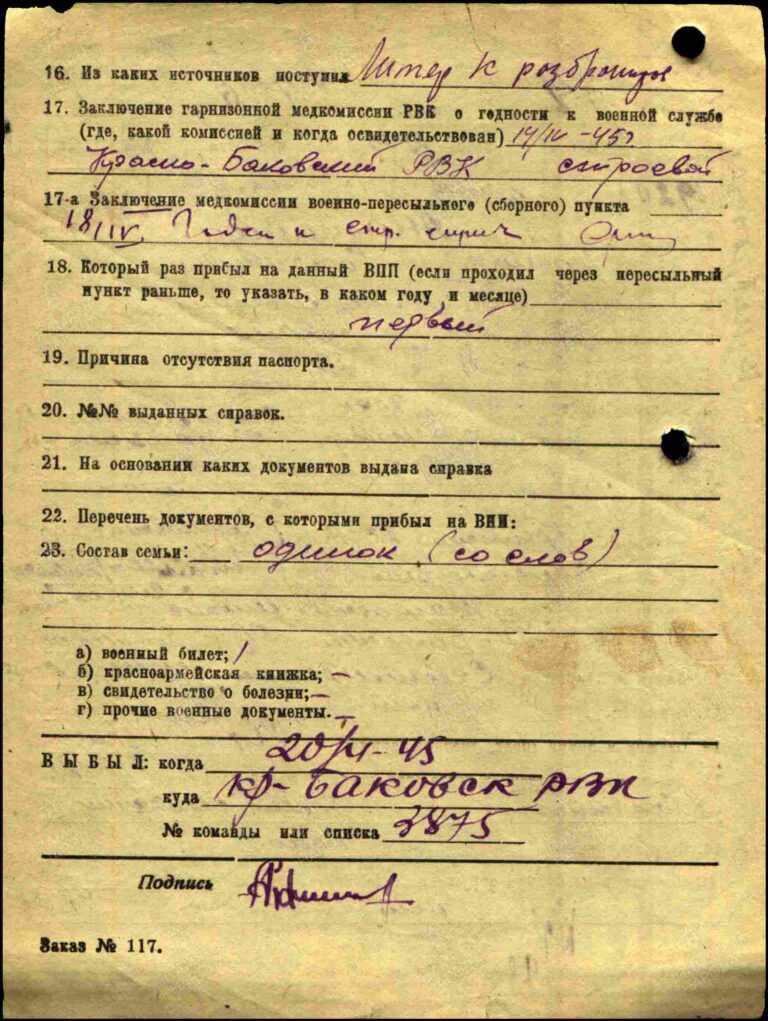 16. Из каких источников поступил Литер К
17. Заключение гарнизонной медкомиссии РВК о годности к военной службе
(где, какой комиссией и когда освидетельствован) 14/IV-45г
Красно-Баковский РВК строевой
17-а Заключение медкомиссии военно-пересыльного (сборного) пункта
18/IV. Годен к
18. Который раз прибыл на данный ВПП (если проходил через пересыльный
пункт раньше, то указать, в каком году и месяце)
первый
19. Причина отсутствия паспорта.
20. №№ выданных справок.
21. На основании каких документов выдана справка
22. Перечень документов, с которыми прибыл на ВПП:
23. Состав семьи: одинок (со слов)
а) военный билет; /
б) красноармейская книжка; —
в) свидетельство о болезни; —
г) прочие военные документы. —
ВЫБЫЛ: когда 20/ -45
куда Кр-Баковск РВК
№ команды или списка 3875
Подпись
Заказ № 117.